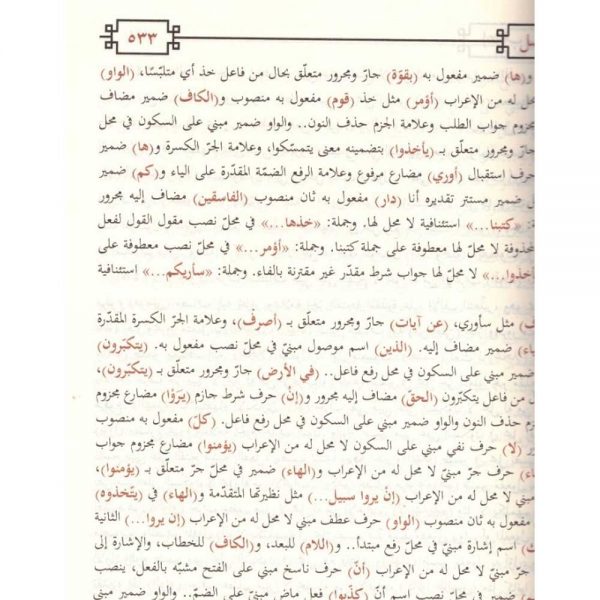 ٥٣٣
و(ها) ضمير مفعول به (بقوّة) جارّ ومجرور متعلّق بحال من فاعل خذ أي متلبّسًا، (الواو)
محل له من الإعراب (أؤمر) مثل خذ (قوم) مفعول به منصوب و(الكاف) ضمير مضاف
مجزوم جواب الطلب وعلامة الجزم حذف النون.. والواو ضمير مبني على السكون في محل
جارّ ومجرور متعلّق بـ (يأخذوا) بتضمينه معنى يتمسّكوا، وعلامة الجرّ الكسرة و(ها) ضمير
حرف استقبال (أوري) مضارع مرفوع وعلامة الرفع الضمّة المقدّرة على الياء و(كم) ضمير
ضمير مستتر تقديره أنا (دار) مفعول به ثان منصوب (الفاسقين) مضاف إليه مجرور
«كتبنا...» استئنافية لا محل لها. وجملة: «خذها...» في محلّ نصب مقول القول لفعل
محذوفة لا محلّ لها معطوفة على جملة كتبنا. وجملة: «أؤمر...» في محلّ نصب معطوفة على
يأخذوا...» لا محلّ لها جواب شرط مقدّر غير مقترنة بالفاء. وجملة: «سأريكم...» استئنافية
مثل سأوري، (عن آيات) جارّ ومجرور متعلّق بـ (أصرف)، وعلامة الجرّ الكسرة المقدّرة
ضمير مضاف إليه. (الذين) اسم موصول مبنيّ في محلّ نصب مفعول به. (يتكبّرون)
ضمير مبني على السكون في محل رفع فاعل.. (في الأرض) جارّ ومجرور متعلّق بـ (يتكبّرون)،
من فاعل يتكبّرون (الحقّ) مضاف إليه مجرور و(إنْ) حرف شرط جازم (يرَوْا) مضارع مجزوم
حذف النون والواو ضمير مبني على السكون في محل رفع فاعل. (كلّ) مفعول به منصوب
(لا) حرف نفي مبني على السكون لا محل له من الإعراب (يؤمنوا) مضارع مجزوم جواب
حرف جرّ مبنيّ لا محل له من الإعراب و(الهاء) ضمير في محلّ جرّ متعلّق بـ (يؤمنوا)،
مبنيّ لا محل له من الإعراب (إنْ يروا سبيل...) مثل نظيرتها المتقدّمة و(الهاء) في (يتّخذوه)
مفعول به ثان منصوب (الواو) حرف عطف مبني لا محل له من الإعراب (إن يروا...) الثانية
اسم إشارة مبني في محلّ رفع مبتدأ.. و(اللام) للبعد، و(الكاف) للخطاب، والإشارة إلى
جرّ مبنيّ لا محل له من الإعراب (أنّ) حرف ناسخ مبني على الفتح مشبّه بالفعل، ينصب
ضمير في محلّ نصب اسم أنّ (كذّبوا) فعل ماض مبني على الضمّ.. والواو ضمير مبني